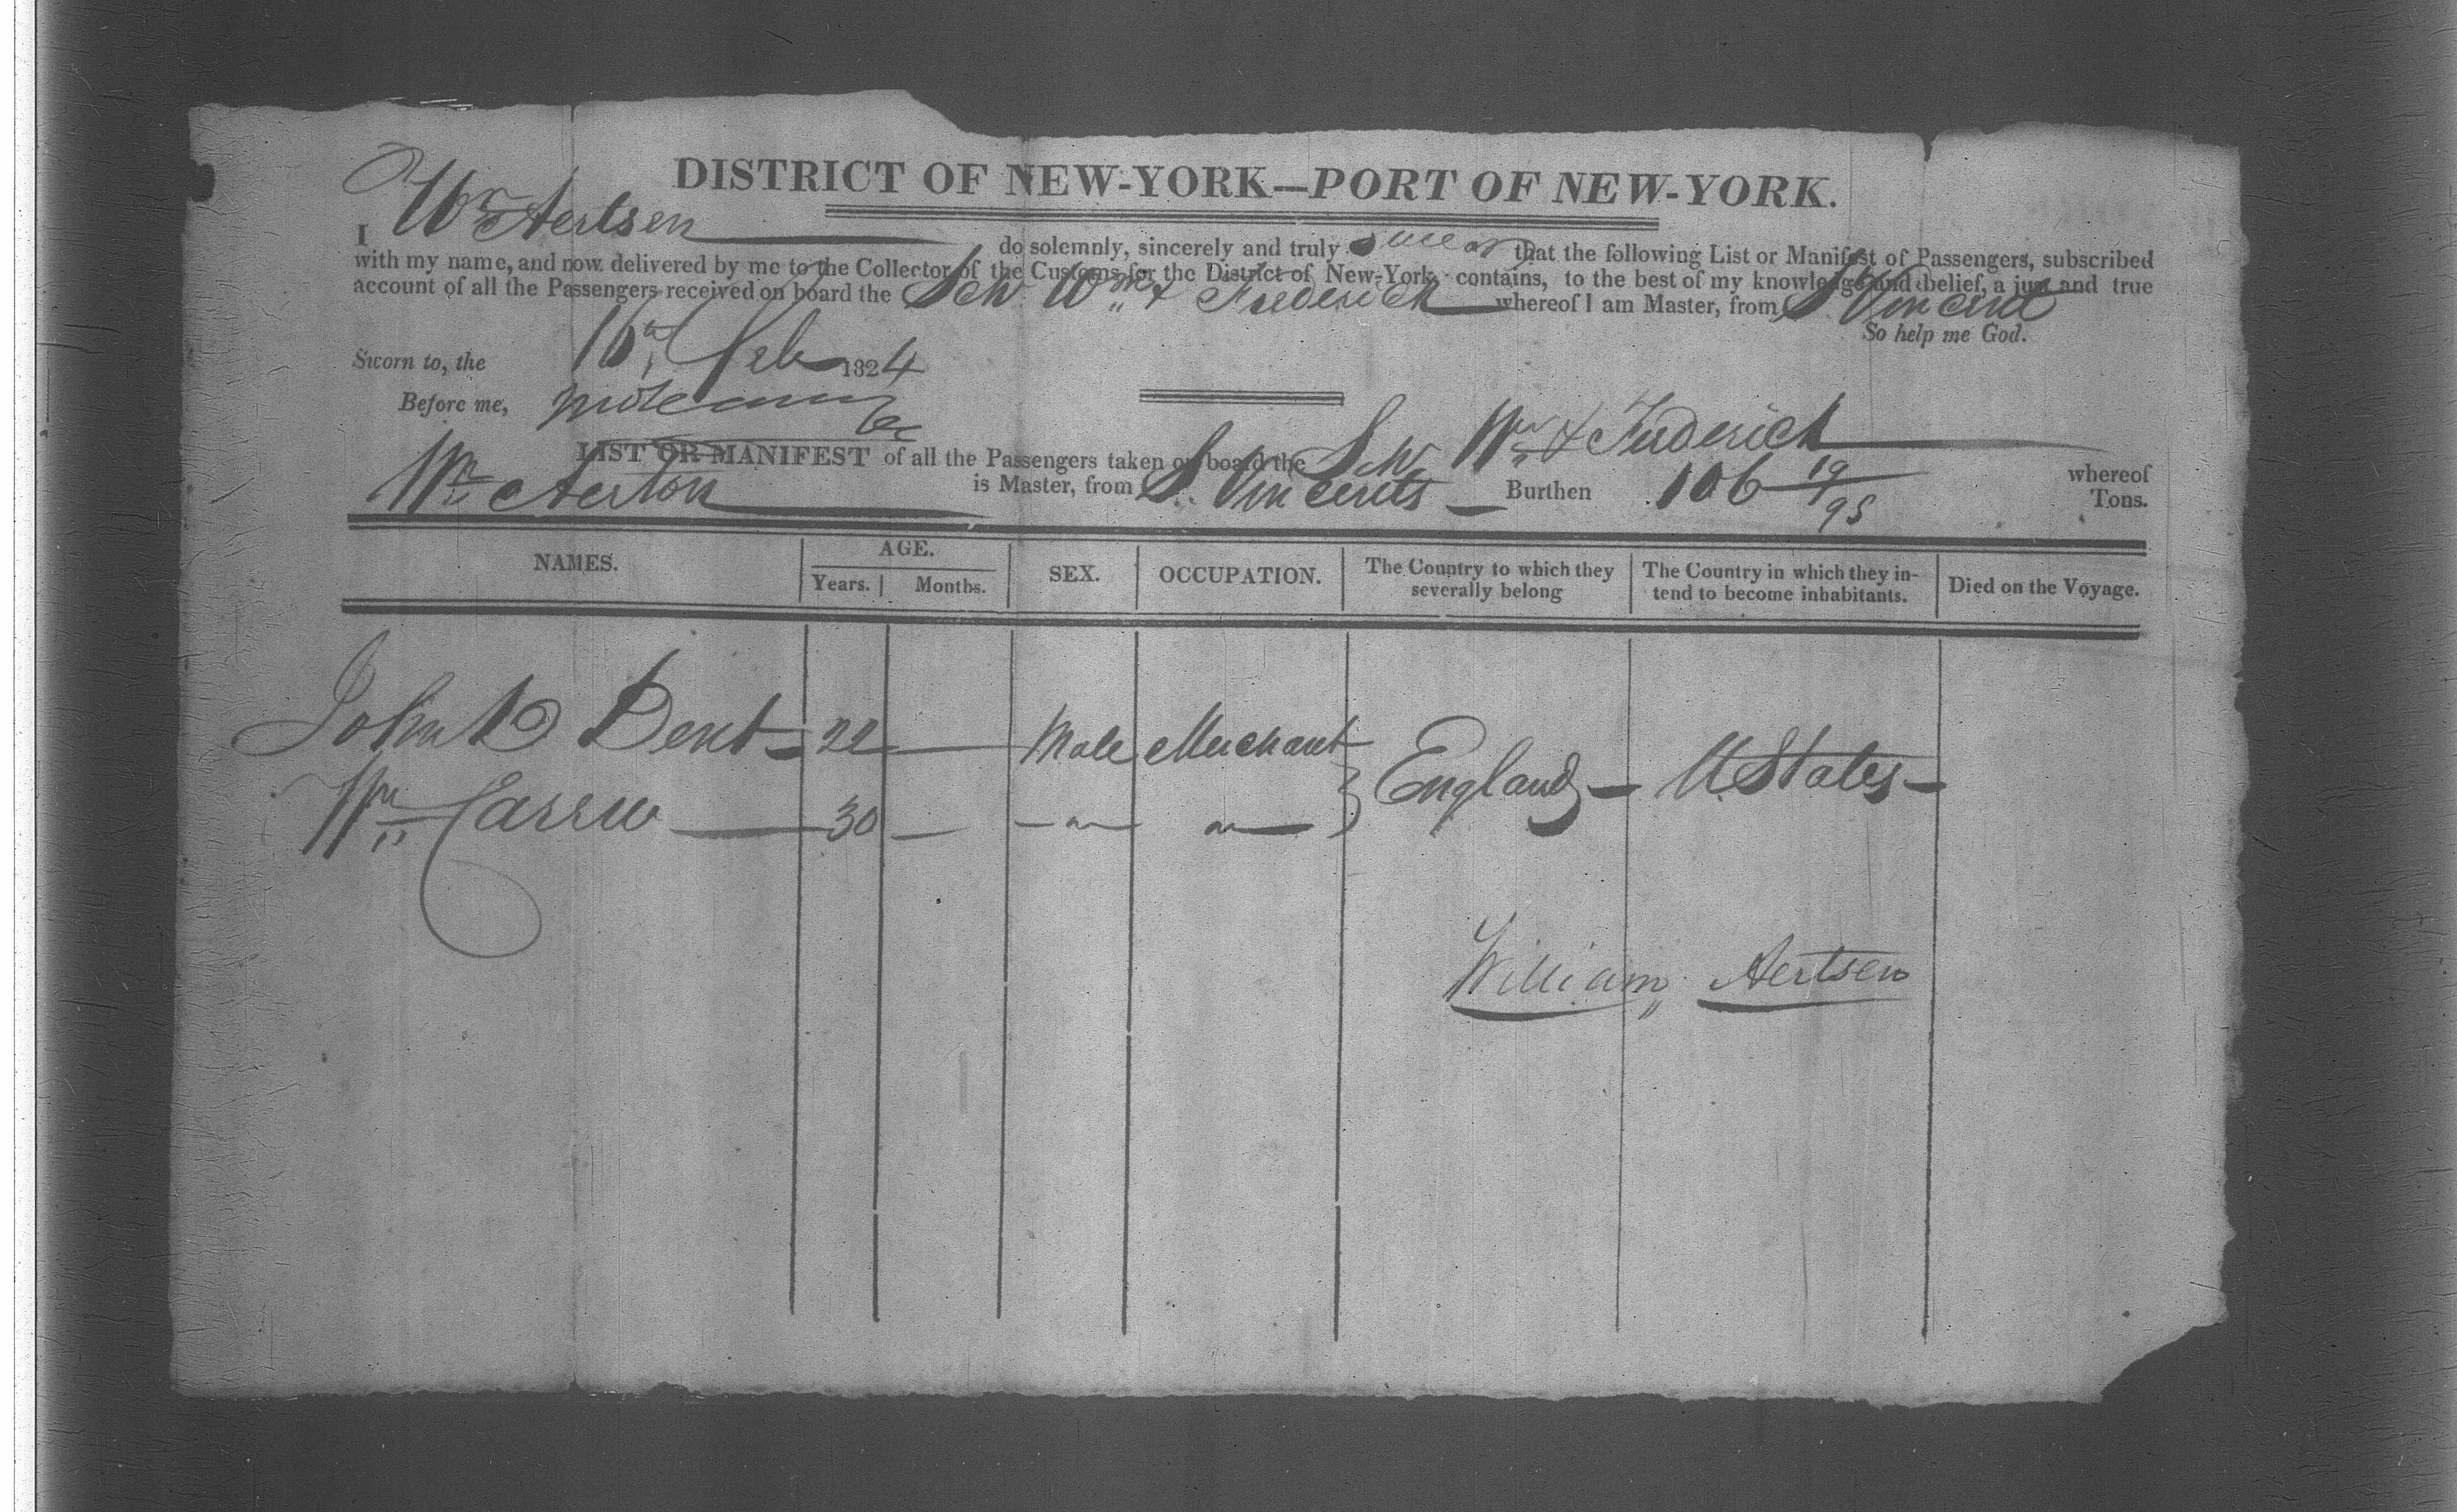 DISTRICT OF NEW-YORK—PORT OF NEW-YORK.
I Wm Aertsen do solemnly, sincerely and truly swear that the following List or Manifest of Passengers, subscribed
with my name, and now delivered by me to the Collector of the Customs for the District of New-York, contains, to the best of my knowledge and belief, a just and true
account of all the Passengers received on board the Sch. Wm & Frederick whereof I am Master, from St Vincent
So help me God.
Sworn to, the 16th Feb 1824
Before me,
LIST OR MANIFEST of all the Passengers taken on board the Sch Wm & Frederick whereof
Wm Aerton is Master, from St Vincents Burthen 106 19/95 Tons.
NAMES. AGE. SEX. OCCUPATION. The Country to which they severally belong The Country in which they intend to become inhabitants. Died on the Voyage.
Years. Months.
John D Dent 22 — Male Merchant
England — U States —
Wm Carrew — 30 — — " — " —
William Aertsen